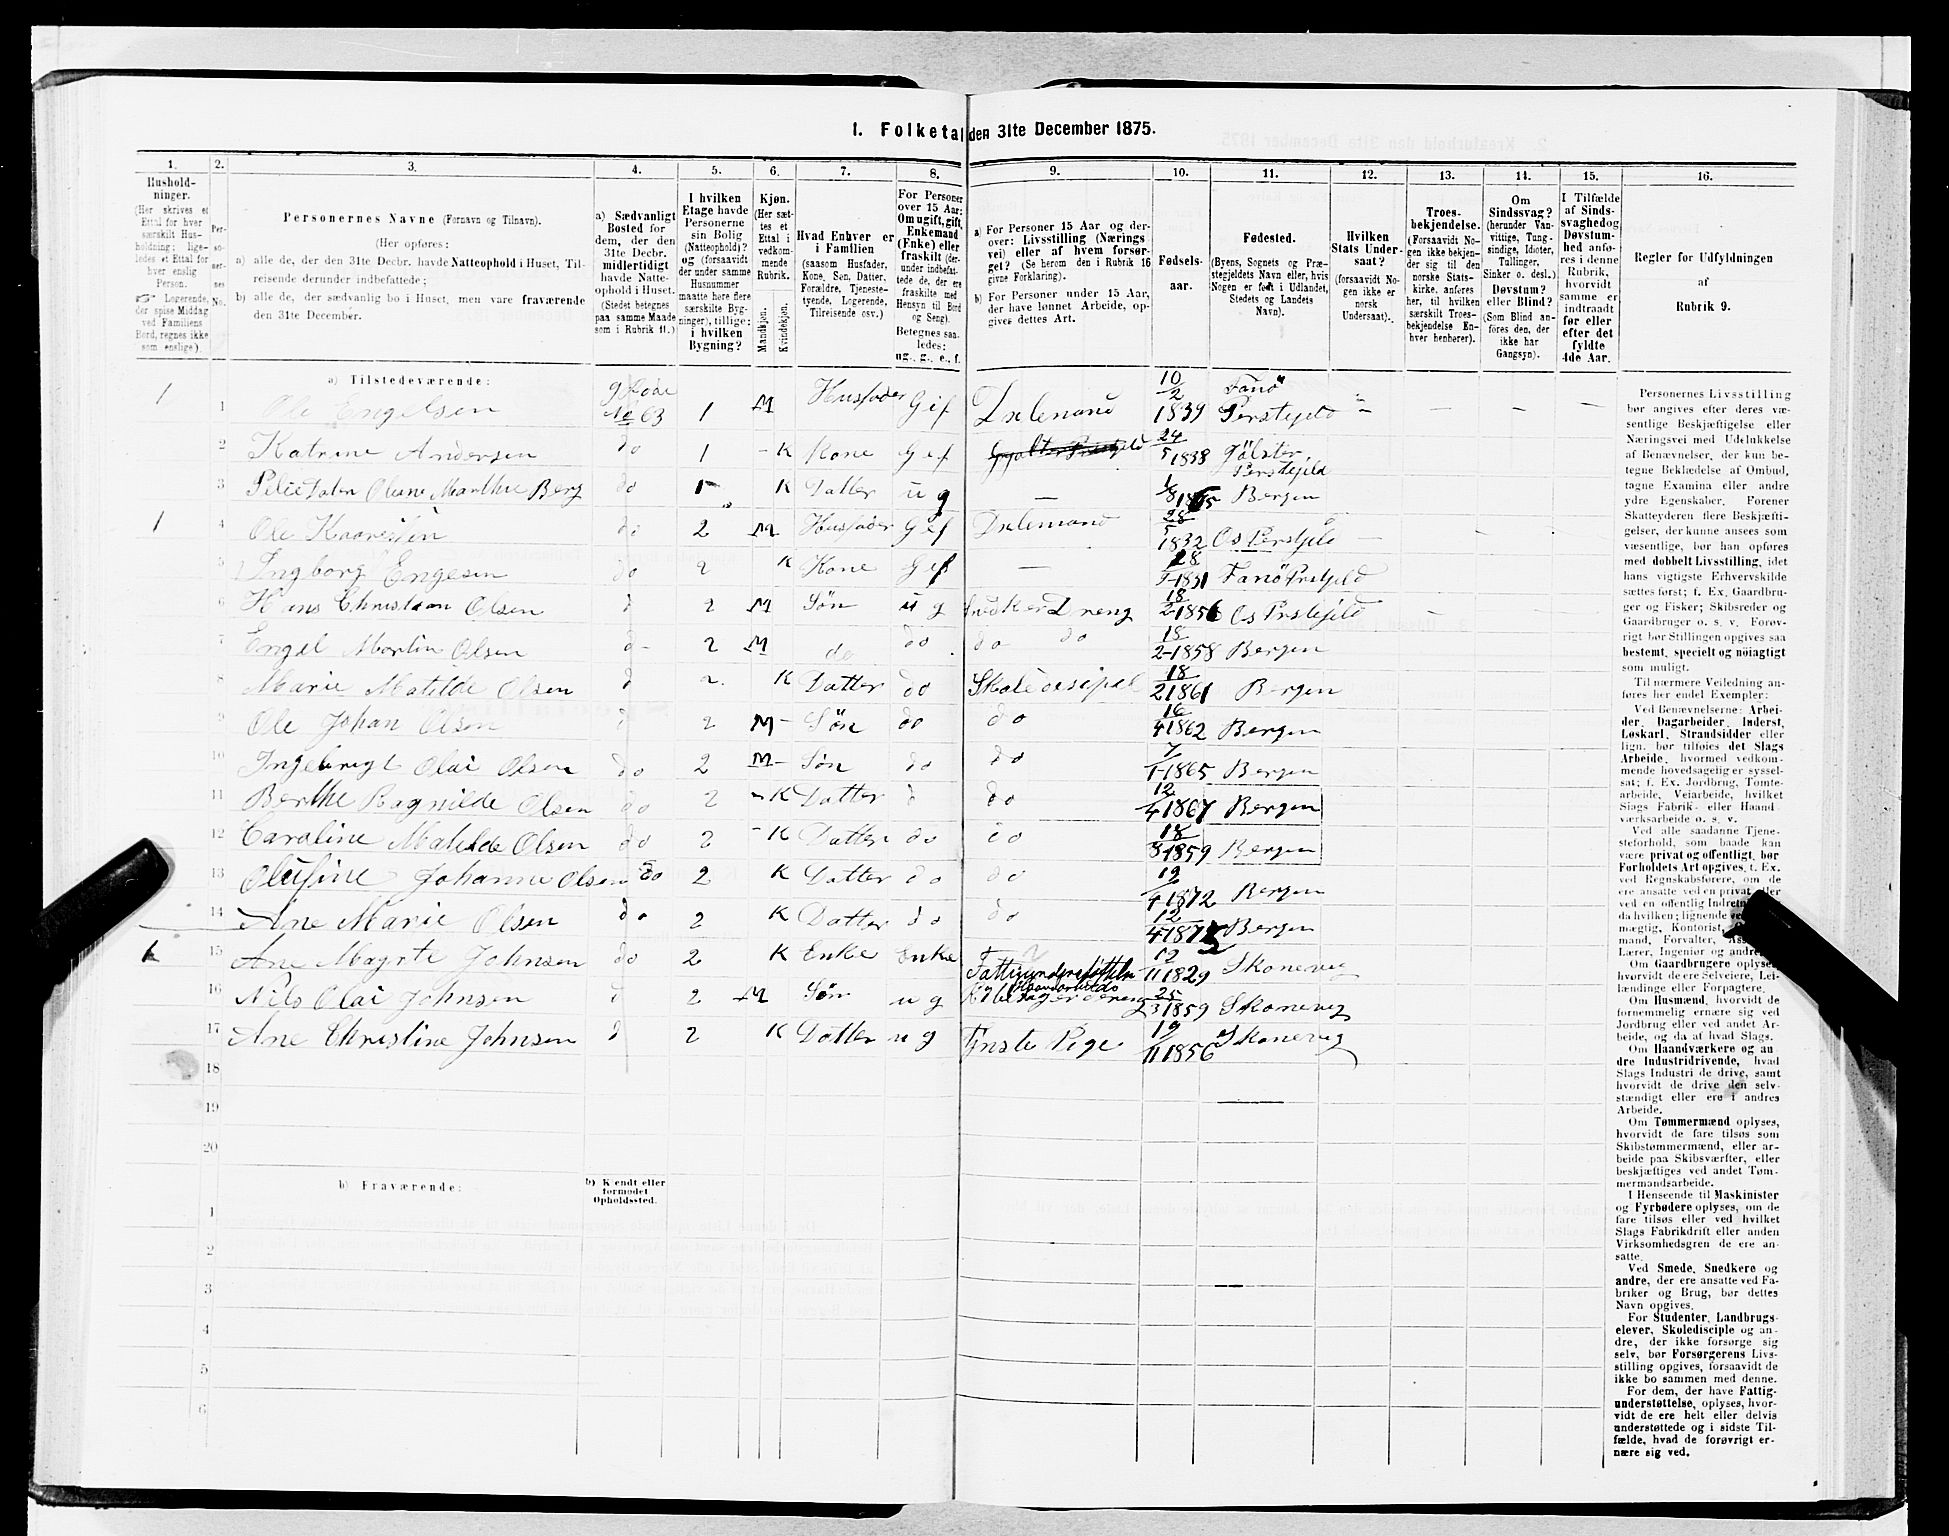 1. Folketal den 31te December 1875.
1.
2.
3.
4.
5.
6.
7.
8.
9.
10.
11.
12.
13.
14.
15.
16.
Hushold-
ninger.
(Her skrives et
Ettal for hver
særskilt Hus-
holdning; lige-
ledes et Ettal for
hver enslig
Person.
☞ Logerende,
der spise Middag
ved Familiens
Bord, regnes ikke
som enslige).
Per-
so-
ner-
nes
No.
Personernes Navne (Fornavn og Tilnavn).
(Her opføres:
a) alle de, der den 31te Decbr. havde Natteophold i Huset, Til-
reisende derunder indbefattede;
b) alle de, der sædvanlig bo i Huset, men vare fraværende
den 31te December.
a) Sædvanligt
Bosted for
dem, der den
31te Decbr.
midlertidigt
havde Natte-
ophold i Huset.
(Stedet betegnes
paa samme Maade
som i Rubrik 11.)
I hvilken
Etage havde
Personerne
sin Bolig
(Natteophold)?
og (forsaavidt
der under samme
Husnummer
maatte høre flere
særskilte Byg-
ninger), tillige:
i hvilken
Bygning?
Kjøn.
(Her sæt-
tes et
Ettal i
vedkom-
mende
Rubrik.
Mandkjøn.
Kvindekjøn.
Hvad Enhver er
i Familien
(saasom Husfader,
Kone, Søn, Datter,
Forældre, Tjeneste-
tyende, Logerende,
Tilreisende osv.)
For Personer
over 15 Aar:
Om ugift, gift,
Enkemand
(Enke) eller
fraskilt (der-
under indbefat-
tede de, der ere
fraskilte med
Hensyn til Bord
og Seng).
Betegnes saa-
ledes:
ug., g., e., f.
a) For Personer 15 Aar og der-
over: Livsstilling (Nærings
vei) eller af hvem forsør-
get? (Se herom den i Rubrik 16
givne Forklaring).
b) For Personer under 15 Aar,
der have lønnet Arbeide, op-
gives dettes Art.
Fødsels-
aar.
Fødested.
(Byens, Sognets og Præ-
stegjeldets Navn eller, hvis
Nogen er født i Udlandet,
Stedets og Landets
Navn).
Hvilken
Stats Under-
saat?
(forsaavidt No-
gen ikke er
norsk
Undersaat).
Troes-
bekjendelse.
(Forsaavidt No-
gen ikke bekjen-
der sig til den
norske Stats-
kirke, anføres
her, til hvilken
særskilt Troes-
bekjendelse En-
hver henhører).
Om
Sindssvag?
(herunder Van-
vittige, Tung-
sindige, Idioter,
Tullinger,
Sinker o. desl.)
Døvstum?
eller Blind?
(Som Blind an-
føres den, der
ikke har
Gangsyn).
I Tilfælde
af Sinds-
svaghed og
Døvstum-
hed anfø-
res i denne
Rubrik,
hvorvidt
samme er
indtraadt
før eller
efter det
fyldte
4de Aar.
Regler for Udfyldningen
af
Rubrik 9.
a) Tilstedeværende:
1 1 Ole Engelsen 9 Rode No 63 1 M Husfader Gif Delemand 10/2 1839 Fanö Perstejeld
2 Katrine Andersen do 1 K Kone Gif 24/5 1838 Jölster Perstejeld
3 Olene Marthe Berg do K Datter ug — Bergen
1 4 Ole do 2 M Husfader Gif Delemand 28/5 1832 Os Perstjeld
5 Ingborg Engesen do 2 K Kone Gif — 28 1831 Fanö Pretjeld
6 Hans Christian Olsen d 2 M Søn ug Dreng 18/2 1856 Os Prstejeld
7 Engel Martin Olsen d 2 M do do do do 18/2 1858 Bergen
8 Marie Matilde Olsen d 2 K Datter do Skoledesipel 18/2 1861 Bergen
9 Ole Johan Olsen d 2 M Søn do do 16/4 1862 Bergen
10 Ingebrigt Olai Olsen do 2 M Søn do do 7/1 1865 Bergen
11 Berthe Ragnilde Olsen do 2 K Datter d do 12/4 1867 Bergen
12 Caroline Matilde Olsen do 2 K Datter do do 18/8 1859 Bergen
13 Olufine Johanne Olsen do 2 K Datter do do 12/4 1872 Bergen
14 Ane Marie Olsen do 2 K Datter do do 12/4 1875 Bergen
15 Ane Magrte Johnsen do 2 K Enke Enke 12/11 1829 Skonevig
16 Nils Olai Johnsen d 2 M Søn ug 1859 Skonevig
17 Ane Christine Johnsen d 2 K Datter ug Tjnste Pige 19/11 1856 Skonevig
18
19
20
b) Fraværende:
b) Kjendt eller
formodet
Opholdssted.
1
2
3
4
5
6
Personernes Livsstilling
bør angives efter deres væ-
sentlige Beskjæftigelse eller
Næringsvei med Udelukkelse
af Benævnelser, der kun be-
tegne Beklædelse af Ombud,
tagne Examina eller andre
ydre Egenskaber. Forener
Skatteyderen flere Beskjæfti-
gelser, der kunne ansees som
væsentlige, bør han opføres
med dobbelt Livsstilling, idet
hans vigtigste Erhvervskilde
sættes først; f. Ex. Gaardbru-
ger og Fisker; Skibsreder og
Gaardbruger o. s. v. Forøv-
rigt bør Stillingen opgives saa
bestemt, specielt og nöiagtigt
som muligt.
Til nærmere Veiledning an-
føres her endel Exempler:
Ved Benævnelserne: Arbei-
der, Dagarbeider, Inderst,
Løskarl, Strandsidder eller
lign. bør tilføies det Slags
Arbeide, hvormed vedkom-
mende hovedsagelig er syssel-
sat; f. Ex. Jordbrug, Tomte-
arbeide, Veiarbeide, hvilket
Slags Fabrik- eller Haand-
værksarbeide o. s. v.
Ved alle saadanne Tjene-
steforhold, som baade kan
være privat og offentligt, bør
Forholdets Art opgives, t. Ex.
ved Regnskabsførere, om de
ere ansatte ved en privat eller
ved en offentlig Indretning
da hvilken; lignende
mægtig, Kontorist,
mand, Forvalter,
Lærer, Ingeniør og andre.
Om Gaardbrugere oplyses,
hvorvidt de ere Selveiere, Lei-
lændinge eller Forpagtere.
Om Husmænd, hvorvidt de
fornemmelig ernære sig ved
Jordbrug eller ved andet Ar-
beide, og da af hvad Slags.
Om Haandværkere og an
dre Industridrivende, hvad
Slags Industri de drive, samt
hvorvidt de drive den selv-
stændigt eller ere i andres
Arbeide.
Om Tømmermænd oplyses,
hvorvidt de fare tilsøs som
Skibstømmermænd, eller ar-
beide paa Skibsværfter, eller
beskjæftiges ved andet Tøm-
mermandsarbeide.
I Henseende til Maskinister
og Fyrbødere oplyses, om de
fare tilsøs eller ved hvilket
Slags Fabrikdrift eller anden
Virksomhedsgren de ere an-
satte.
Ved Smede, Snedkere og
andre, der ere ansatte ved Fa-
briker og Brug, bør dettes
Navn opgives.
For Studenter, Landbrugs-
elever, Skoledisciple og an-
dre, der ikke forsørge sig
selv, bør Forsørgerens Livs-
stilling opgives, forsaavidt de
ikke bo sammen med denne.
For dem, der have Fattig-
understøttelse, oplyses, hvor-
vidt de ere helt eller delvis
understøttede og i sidste Til-
fælde, hvad de forøvrigt er-
nære sig ved.